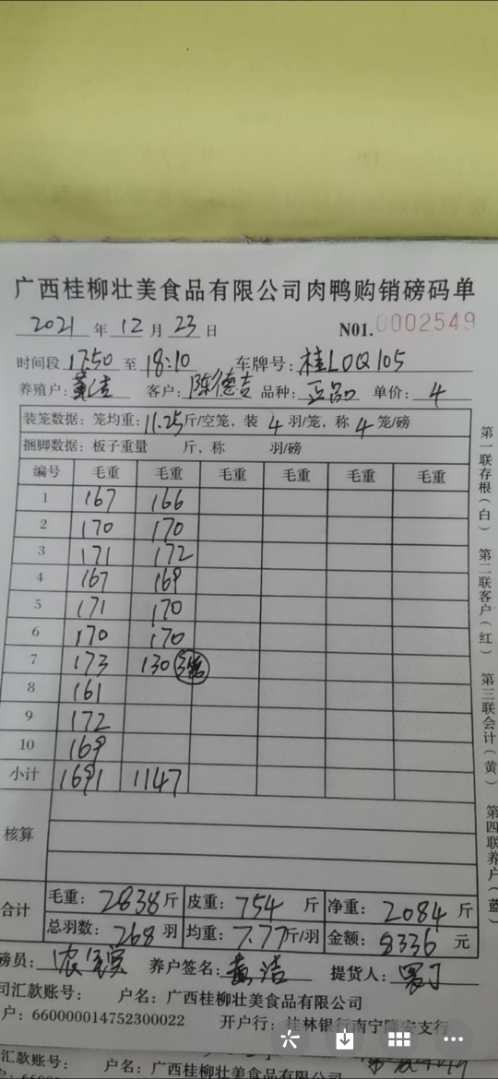 广西桂柳壮美食品有限公司肉鸭购销磅码单
2021 年 12 月 23 日 N01. 0002549
时间段 17:50 至 18:10 车牌号: 桂L0Q105
养殖户: 黄洁 客户: 陈德吉 品种: 正品 单价: 4
装笼数据: 笼均重: 11.25 斤/空笼, 装 4 羽/笼, 称 4 笼/磅
捆脚数据: 板子重量 斤, 称 羽/磅
编号 毛重 毛重 毛重 毛重 毛重 毛重
1 167 166
2 170 170
3 171 172
4 167 169
5 171 170
6 170 170
7 173 130 3笼
8 161
9 172
10 169
小计 1691 1147
核算
合计 毛重: 2838 斤 皮重: 754 斤 净重: 2084 斤
总羽数: 268 羽 均重: 7.77 斤/羽 金额: 8336 元
磅员: 养户签名: 黄洁 提货人:
司汇款账号: 户名: 广西桂柳壮美食品有限公司
户: 660000014752300022 开户行: 桂林银行南宁隆安支行
汇款账号: 户名: 广西桂柳壮美食品有限公司
第一联存根(白) 第二联客户(红) 第三联会计(黄) 第四联养户(蓝)